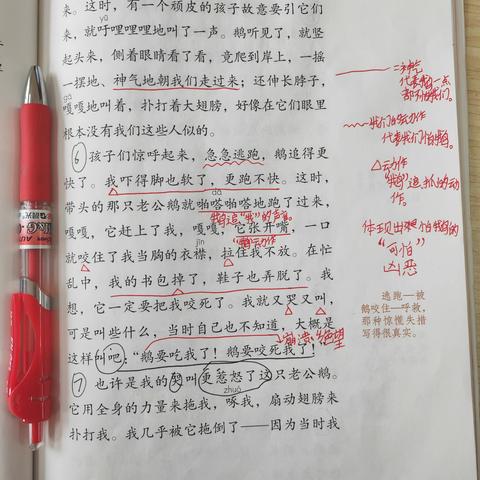 来。这时，有一个顽皮的孩子故意要引它们
来，就吁哩哩哩地叫了一声。鹅听见了，就竖
yū
起头来，侧着眼睛看了看，竟爬到岸上，一摇
一摆地、神气地朝我们走过来；还伸长脖子，
gā
嘎嘎地叫着，扑打着大翅膀，好像在它们眼里
根本没有我们这些人似的。
⑥孩子们惊呼起来，急急逃跑，鹅追得更
快了。我吓得脚也软了，更跑不快。这时，
dā
带头的那只老公鹅就啪嗒啪嗒地跑了过来，
鹅追“我”的声音。
嘎嘎，它赶上了我，嘎嘎，它张开嘴，一口
jīn
就咬住了我当胸的衣襟，拉住我不放。在忙
乱中，我的书包掉了，鞋子也弄脱了。我
想，它一定要把我咬死了。我就又哭又叫，
可是叫些什么，当时自己也不知道，大概是
崩溃、绝望
这样叫吧：“鹅要吃我了！鹅要咬死我了！”
⑦也许是我的哭叫更惹怒了这只老公鹅。
zhuó
它用全身的力量来拖我，啄我，扇动翅膀来
扑打我。我几乎被它拖倒了——因为当时我
神气
代表鹅一点
都不怕我们。
我们的动作
代表我们怕鹅。
△动作
“鹅”追我的动
作。
体现出
“可怕”
凶恶
逃跑—被
鹅咬住—呼救，
那种惊慌失措
写得很真实。